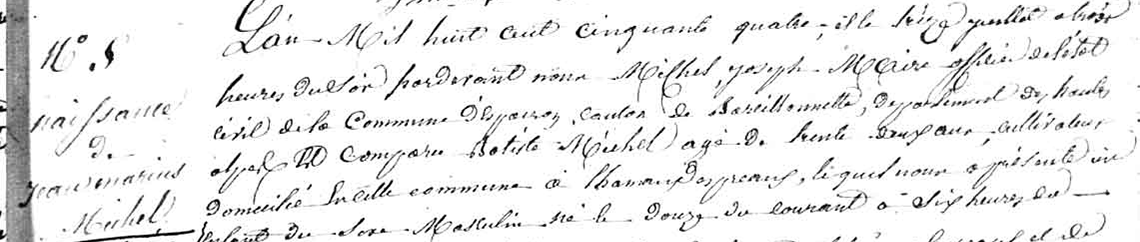 N° 5
naissance
de
jean marius
Michel
L'an Mil huit cent cinquante quatre, et le treize juillet a trois
heures du soir pardevant nous Michel joseph Maire officier de l'état
civil de la Commune d'Esparron canton de Barcillonnette, département des hautes
alpes est comparu Batiste Michel agé de trente deux ans, cultivateur
domicilié en cette commune à hameau des preaux, lequel nous a présenté un
Enfant du sexe Masculin né le douze du courant à six heures du